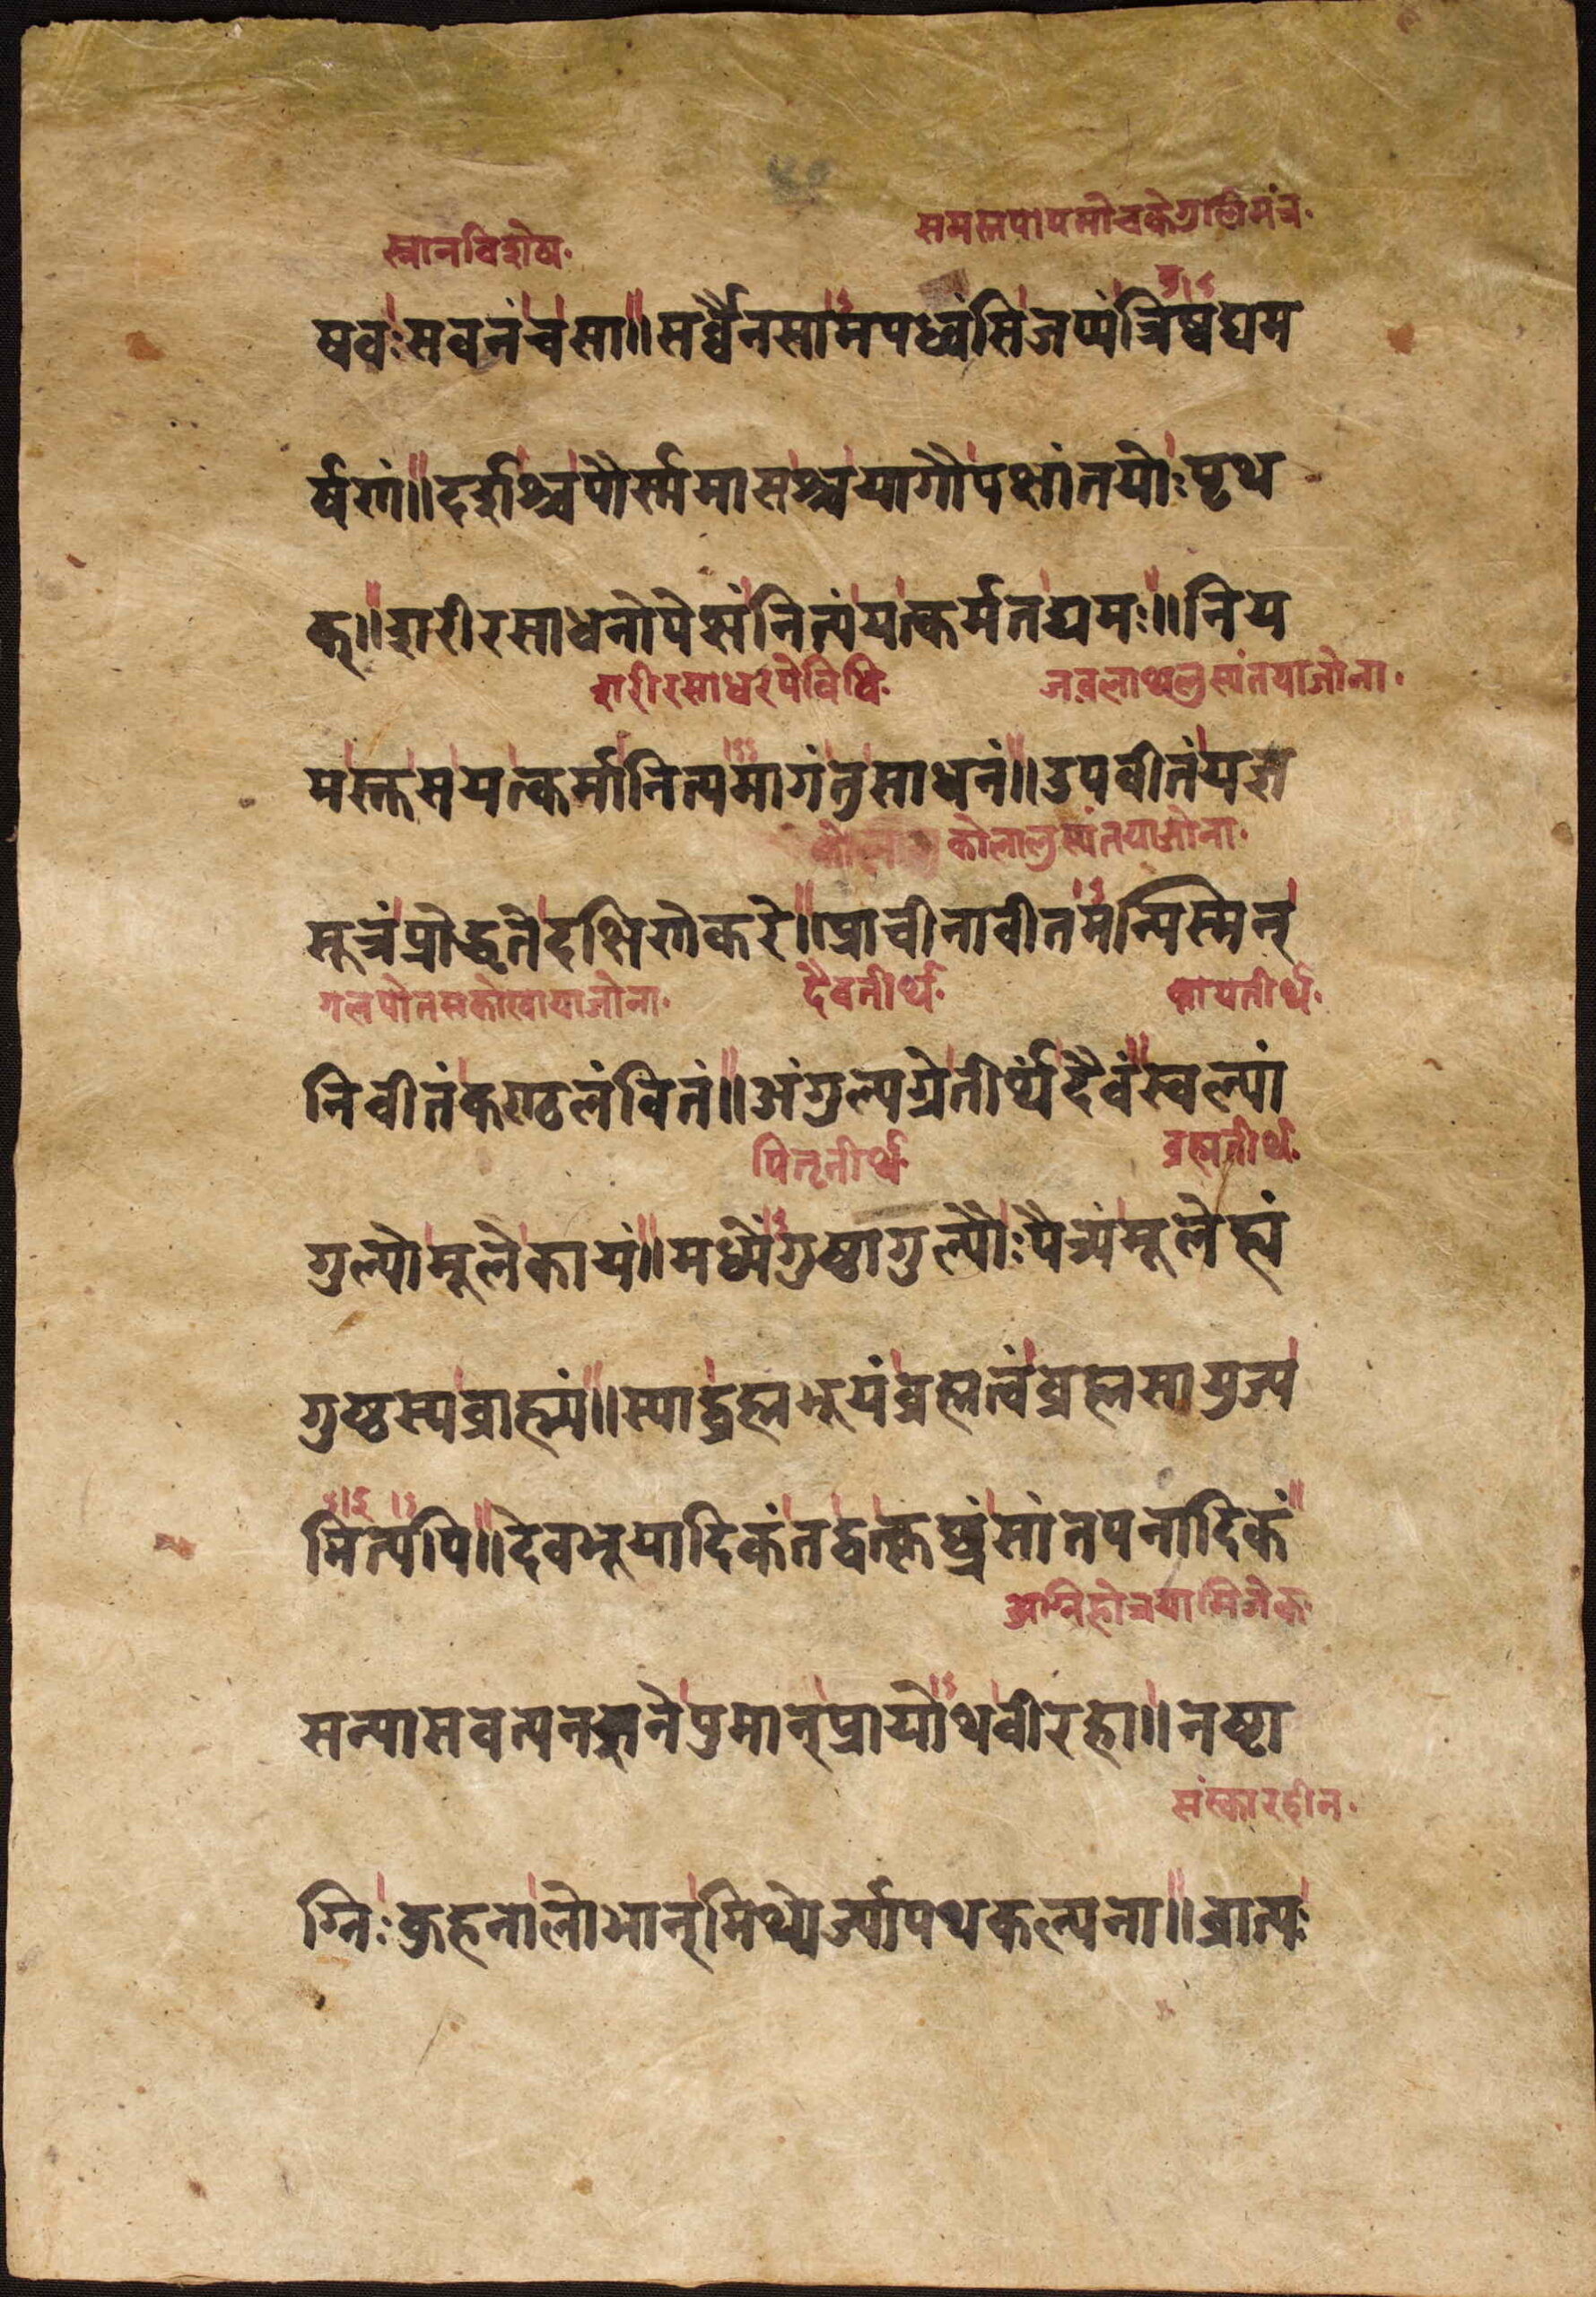 स्नानविशेष. समस्तपापमोचके गुलिमंत्र.
षवःसवनंचसा॥सर्व्वैनसामपध्वंसिजप्यंत्रिष्वद्यम
र्षणं॥दर्शश्चपौर्स्ममासश्चयागौपक्षांतयोःपृथ
क्॥शरीरसाधनोपेक्षंनित्यंयत्कर्मतद्यमः॥निय
शरीरसाधरपेविधि. जवलाथ्थलुस्यंतयाजोना.
मस्क्तसयत्कर्मानित्यमागंतुसाधनं॥उपवीतंयज्ञ
कोलालुस्यंतयाजोना.
सूत्रंप्रोद्धृतेदक्षिणेकरे॥प्राचीनावीतमन्यिस्मिन्
गलपोतसकोखायाजोना. दैवतीर्थ. कायतीर्थ.
निवीतंकण्ठलंवितं॥अंगुल्यग्रेतीर्थ्यंदैवंस्वल्पां
पितृतीर्थ. ब्रह्मतीर्थ.
गुल्योमूलेकायं॥मध्येंगुष्ठागुल्योःपैत्र्यंमूलेह्यं
गुष्ठस्यब्राह्म्यं॥स्याद्ब्रह्मभूयंब्रह्मत्वंब्रह्मसायुज्य
मित्यपि॥देवभूयादिकंतद्वत्कृछ्रंसांतपनादिकं
अग्निहोत्रयामिजेक.
सन्यासवत्यनशनेपुमान्प्रायोथवीरहा॥नष्टा
संस्कारहीन.
ग्निःकुहनालोभान्मिथ्येर्य्यापथकल्पना॥व्रात्यः